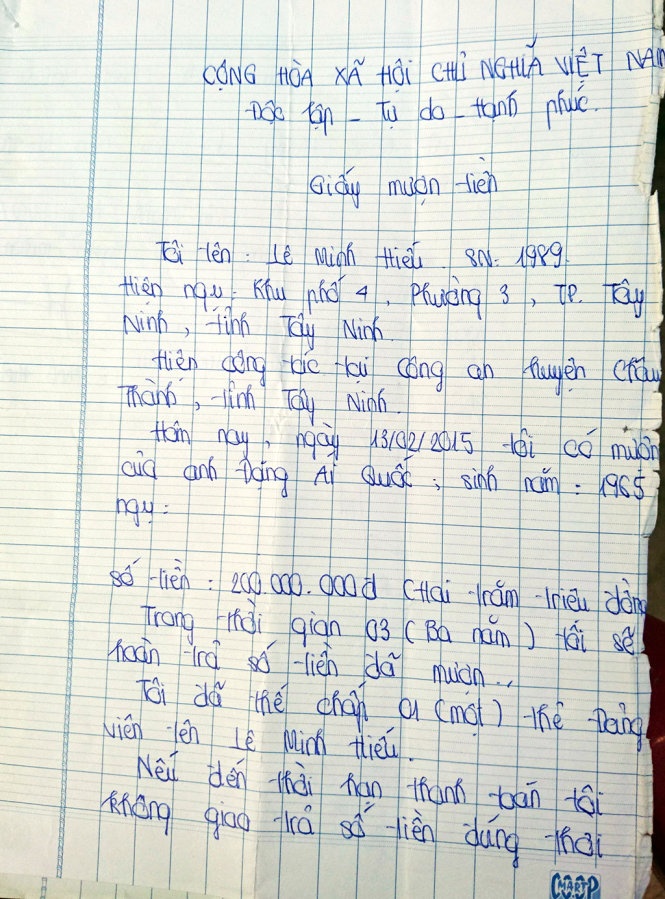 CỘNG HÒA XÃ HỘI CHỦ NGHĨA VIỆT NAM
Độc lập - Tự do - Hạnh phúc.
Giấy mượn tiền
Tôi tên : Lê Minh Hiếu. SN: 1989.
Hiện ngụ : Khu phố 4, Phường 3, TP. Tây
Ninh, tỉnh Tây Ninh.
Hiện công tác tại Công an huyện Châu
Thành, tỉnh Tây Ninh.
Hôm nay, ngày 13/02/2015 tôi có mượn
của anh Đặng Ái Quốc ; sinh năm : 1965
ngụ :
số tiền : 200.000.000đ (Hai trăm triệu đồng
Trong thời gian 03 (Ba năm) tôi sẽ
hoàn trả số tiền đã mượn..
Tôi đã thế chấp 01 (một) thẻ Đảng
viên tên Lê Minh Hiếu.
Nếu đến thời hạn thanh toán tôi
không giao trả số tiền đúng thời
MARTP